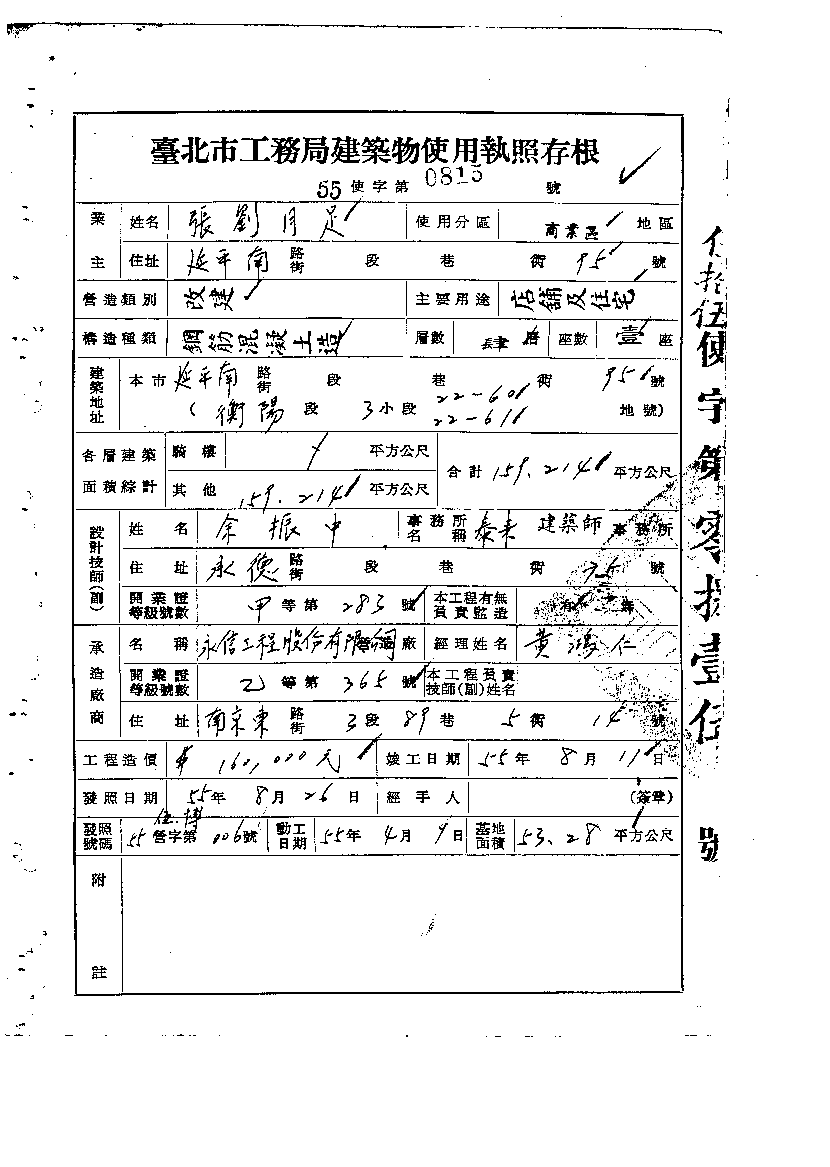 臺北市工務局建築物使用執照存根
55 使字第 0815 號
業主 姓名 張劉月足 使用分區 商業區 地區
住址 延平南 路街 段 巷 衖 95 號
營造類別 改建 主要用途 店舖及住宅
構造種類 鋼筋混凝土造 層數 肆層 座數 壹座
建築地址 本市 延平南 路街 段 巷 衖 95 號
(衡陽 段 3 小段 22-60 22-61 地號)
各層建築面積綜計 騎樓 平方公尺 合計 159.214 平方公尺
其他 159.214 平方公尺
設計技師(副) 姓名 余振中 事務所名稱 泰來 建築師 事務所
住址 永德 路街 段 巷 衖 75 號
開業證等級號數 甲 等第 283 號 本工程有無負責監造
承造廠商 名稱 永信工程股份有限公司 營造廠 經理姓名 黃鴻仁
開業證等級號數 乙 等第 365 號 本工程負責技師(副)姓名
住址 南京東 路街 3 段 89 巷 5 衖 14 號
工程造價 $ 160,000元 竣工日期 55年 8月 11日
發照日期 55年 8月 26日 經手人 (簽章)
發照號碼 55 營字第 006號 動工日期 55年 4月 9日 基地面積 53.28 平方公尺
附註
伍拾伍使字第零捌壹伍號